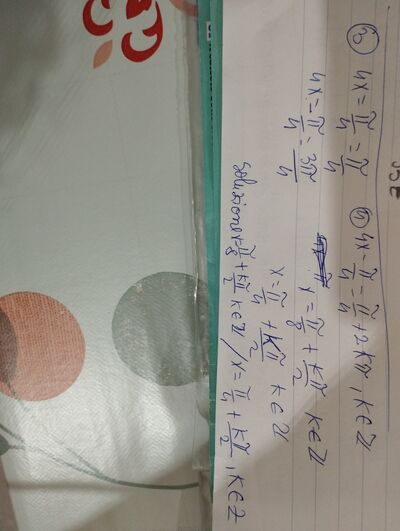 ③ 4x = π/4 = π/4 ④ 4x - π/4 = π/4 + 2kπ, k∈ℤ
4x - π/4 = 3π/4 x = π/8 + kπ/2 k∈ℤ
x = π/4 + kπ/2 k∈ℤ
Soluzione x = π/8 + kπ/2 k∈ℤ / x = π/4 + kπ/2, k∈ℤ